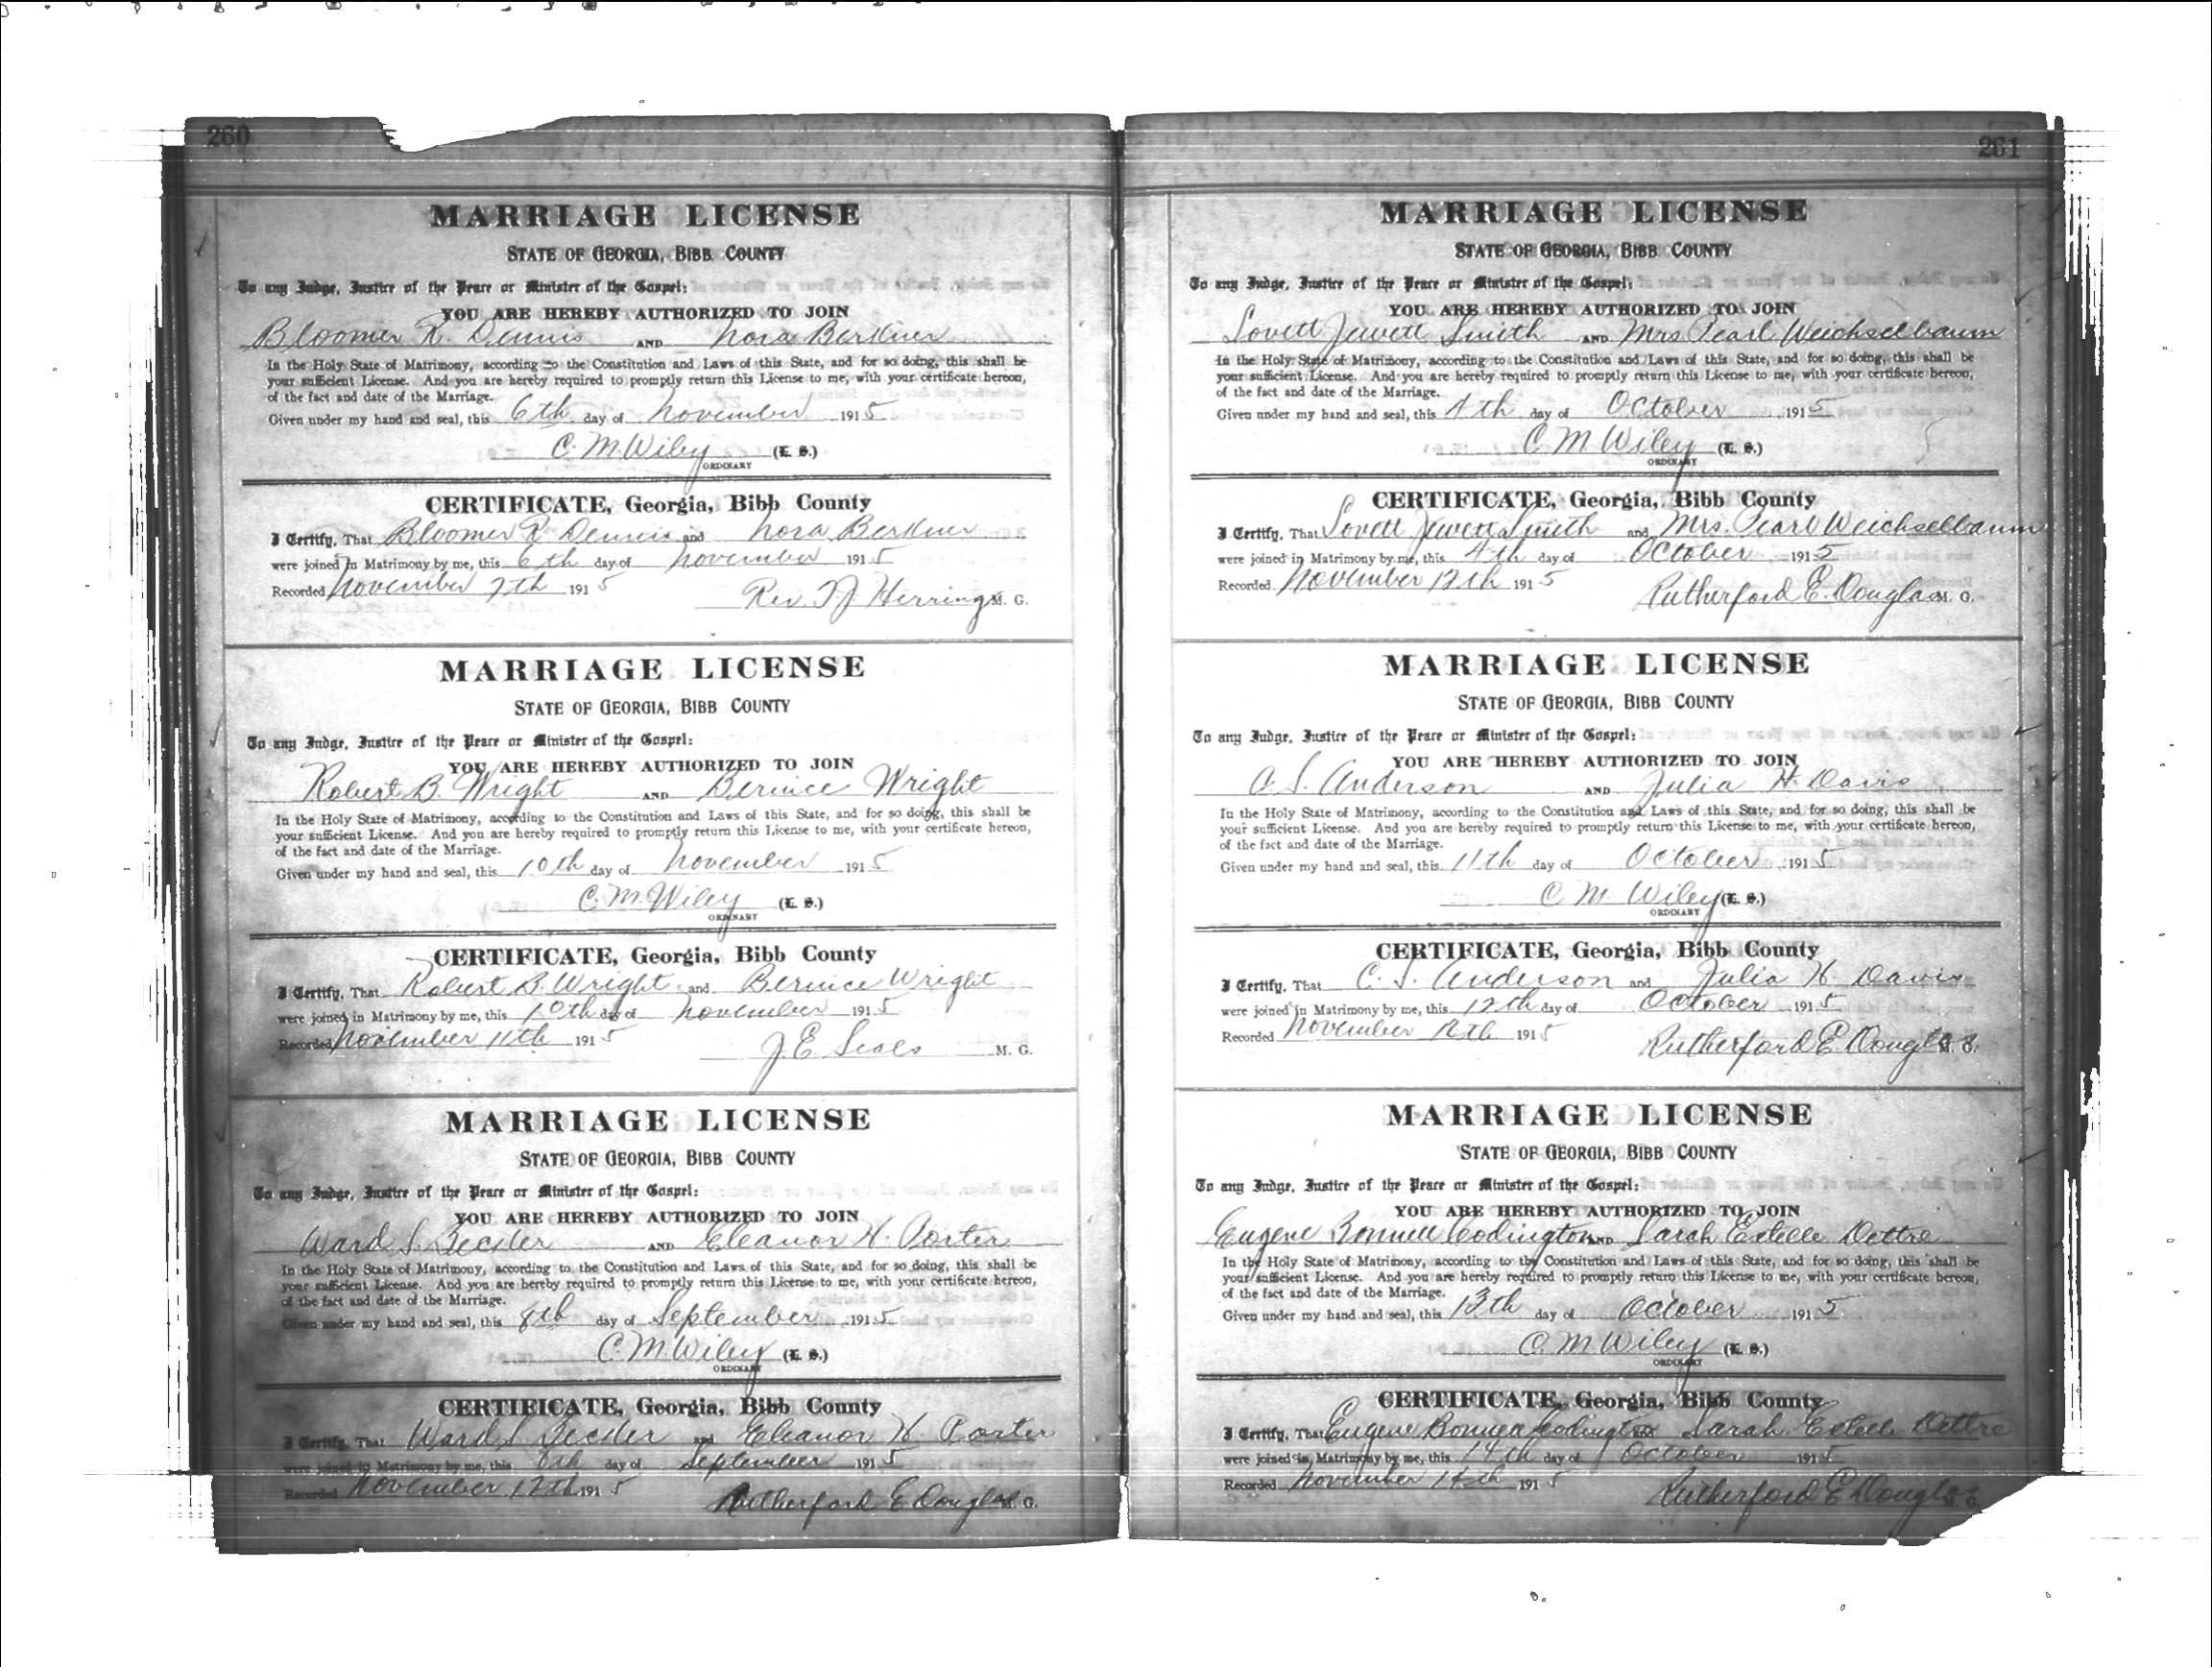 260
MARRIAGE LICENSE
STATE OF GEORGIA, BIBB COUNTY
To any Judge, Justice of the Peace or Minister of the Gospel:
YOU ARE HEREBY AUTHORIZED TO JOIN
Bloomer R. Dennis AND Nora Berkner
In the Holy State of Matrimony, according to the Constitution and Laws of this State, and for so doing, this shall be
your sufficient License. And you are hereby required to promptly return this License to me, with your certificate hereon,
of the fact and date of the Marriage.
Given under my hand and seal, this 6th day of November 1915
C. M. Wiley (L. S.)
ORDINARY
CERTIFICATE, Georgia, Bibb County
I Certify, That Bloomer R Dennis and Nora Berkner
were joined in Matrimony by me, this 6th day of November 1915
Recorded November 7th 1915
Rev. T J Herring M. G.
MARRIAGE LICENSE
STATE OF GEORGIA, BIBB COUNTY
To any Judge, Justice of the Peace or Minister of the Gospel:
YOU ARE HEREBY AUTHORIZED TO JOIN
Robert B. Wright AND Bernice Wright
In the Holy State of Matrimony, according to the Constitution and Laws of this State, and for so doing, this shall be
your sufficient License. And you are hereby required to promptly return this License to me, with your certificate hereon,
of the fact and date of the Marriage.
Given under my hand and seal, this 10th day of November 1915
C. M. Wiley (L. S.)
ORDINARY
CERTIFICATE, Georgia, Bibb County
I Certify, That Robert B. Wright and Bernice Wright
were joined in Matrimony by me, this 10th day of November 1915
Recorded November 11th 1915
J. E. Seals M. G.
MARRIAGE LICENSE
STATE OF GEORGIA, BIBB COUNTY
To any Judge, Justice of the Peace or Minister of the Gospel:
YOU ARE HEREBY AUTHORIZED TO JOIN
Ward S. AND Eleanor H. Porter
In the Holy State of Matrimony, according to the Constitution and Laws of this State, and for so doing, this shall be
your sufficient License. And you are hereby required to promptly return this License to me, with your certificate hereon,
of the fact and date of the Marriage.
Given under my hand and seal, this 8th day of September 1915
C. M. Wiley (L. S.)
ORDINARY
CERTIFICATE, Georgia, Bibb County
I Certify, That Ward S and Eleanor H. Porter
were joined in Matrimony by me, this 8th day of September 1915
Recorded November 12th 1915
Rutherford E Douglas M. G.
261
MARRIAGE LICENSE
STATE OF GEORGIA, BIBB COUNTY
To any Judge, Justice of the Peace or Minister of the Gospel:
YOU ARE HEREBY AUTHORIZED TO JOIN
Lovett Jewett Smith AND Mrs Pearl Weichselbaum
In the Holy State of Matrimony, according to the Constitution and Laws of this State, and for so doing, this shall be
your sufficient License. And you are hereby required to promptly return this License to me, with your certificate hereon,
of the fact and date of the Marriage.
Given under my hand and seal, this 4th day of October 1915
C. M. Wiley (L. S.)
ORDINARY
CERTIFICATE, Georgia, Bibb County
I Certify, That Lovett Jewett Smith and Mrs. Pearl Weichselbaum
were joined in Matrimony by me, this 4th day of October 1915
Recorded November 12th 1915
Rutherford E. Douglas M. G.
MARRIAGE LICENSE
STATE OF GEORGIA, BIBB COUNTY
To any Judge, Justice of the Peace or Minister of the Gospel:
YOU ARE HEREBY AUTHORIZED TO JOIN
C. S. Anderson AND Julia H. Davis
In the Holy State of Matrimony, according to the Constitution and Laws of this State, and for so doing, this shall be
your sufficient License. And you are hereby required to promptly return this License to me, with your certificate hereon,
of the fact and date of the Marriage.
Given under my hand and seal, this 11th day of October 1915
C. M. Wiley (L. S.)
ORDINARY
CERTIFICATE, Georgia, Bibb County
I Certify, That C. S. Anderson and Julia H. Davis
were joined in Matrimony by me, this 12th day of October 1915
Recorded November 12th 1915
Rutherford E. Douglas M. G.
MARRIAGE LICENSE
STATE OF GEORGIA, BIBB COUNTY
To any Judge, Justice of the Peace or Minister of the Gospel:
YOU ARE HEREBY AUTHORIZED TO JOIN
Eugene Bonnell Codington AND Sarah Estelle Dettre
In the Holy State of Matrimony, according to the Constitution and Laws of this State, and for so doing, this shall be
your sufficient License. And you are hereby required to promptly return this License to me, with your certificate hereon,
of the fact and date of the Marriage.
Given under my hand and seal, this 13th day of October 1915
C. M. Wiley (L. S.)
ORDINARY
CERTIFICATE, Georgia, Bibb County
I Certify, That Eugene Bonnell Codington Sarah Estelle Dettre
were joined in Matrimony by me, this 14th day of October 1915
Recorded November 1915
Rutherford E Douglas M. G.